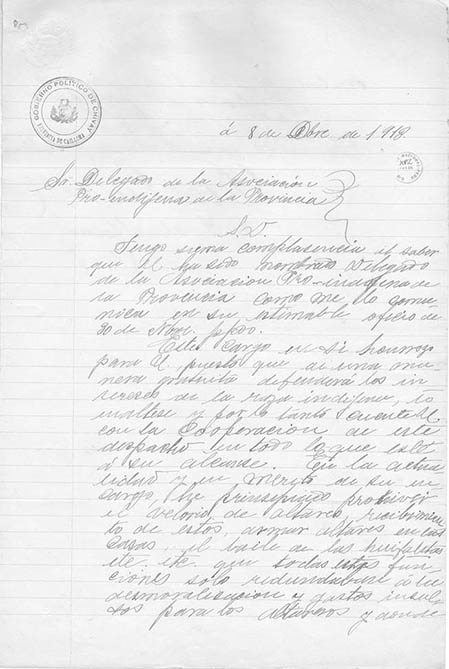 GOBIERNO POLITICO DE CHIVAY
á 8 de Dbre. de 1918
Sr. Delegado de la Asociación
Pro-indíjena de la Provincia
S. D.
Tengo suma complasencia el saber
que U. ha sido nombrado Delegado
de la Asociacion Pro-indijena de
la Provincia como me lo comu
nica en su estimable oficio de
30 de Nove. ppdo.
Este cargo en si honrrozo
para el puesto que de una ma
nera gratuita defenderá los in
tereses de la raza indijena, lo
enaltese y por lo tanto cuente U.
con la cooperacion de este
despacho en todo lo que esté
á su alcanse. En la actua
lidad y en merito de su en
cargo, he prinsipiado prohivir
el velorio de altares, recibimien
to de estos, armar altares en las
casas, el baile de las huifalas
ete. ete. que todas estas fun
ciones solo redundaban á la
desmoralisacion y gastos insul
sos para los altareros y donde